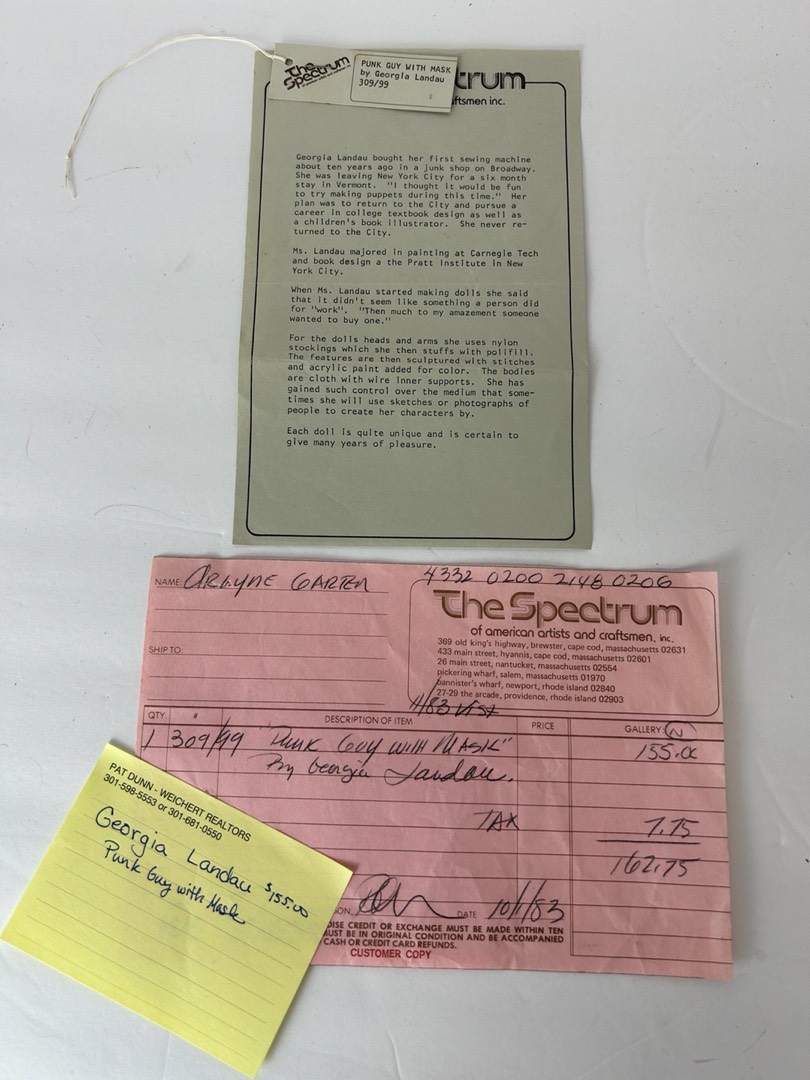 The
Spectrum
PUNK GUY WITH MASK
by Georgia Landau
309/99
trum
aftsmen inc.
Georgia Landau bought her first sewing machine
about ten years ago in a junk shop on Broadway.
She was leaving New York City for a six month
stay in Vermont. "I thought it would be fun
to try making puppets during this time." Her
plan was to return to the City and pursue a
career in college textbook design as well as
a children's book illustrator. She never re-
turned to the City.
Ms. Landau majored in painting at Carnegie Tech
and book design a the Pratt Institute in New
York City.
When Ms. Landau started making dolls she said
that it didn't seem like something a person did
for "work". "Then much to my amazement someone
wanted to buy one."
For the dolls heads and arms she uses nylon
stockings which she then stuffs with polifill.
The features are then sculptured with stitches
and acrylic paint added for color. The bodies
are cloth with wire inner supports. She has
gained such control over the medium that some-
times she will use sketches or photographs of
people to create her characters by.
Each doll is quite unique and is certain to
give many years of pleasure.
NAME: Arlyne Garten
4332 0200 2148 0206
The Spectrum
of american artists and craftsmen, inc.
369 old king's highway, brewster, cape cod, massachusetts 02631
433 main street, hyannis, cape cod, massachusetts 02601
26 main street, nantucket, massachusetts 02554
pickering wharf, salem, massachusetts 01970
bannister's wharf, newport, rhode island 02840
27-29 the arcade, providence, rhode island 02903
SHIP TO:
11/83 VISA
QTY. # DESCRIPTION OF ITEM PRICE GALLERY: N
1 309/99 "Punk Guy with Mask" 155.00
By Georgia Landau.
TAX 7.75
162.75
SON DATE 10/1/83
DISE CREDIT OR EXCHANGE MUST BE MADE WITHIN TEN
MUST BE IN ORIGINAL CONDITION AND BE ACCOMPANIED
CASH OR CREDIT CARD REFUNDS.
CUSTOMER COPY
PAT DUNN - WEICHERT REALTORS
301-598-5553 or 301-681-0550
Georgia Landau $155.00
Punk Guy with Mask